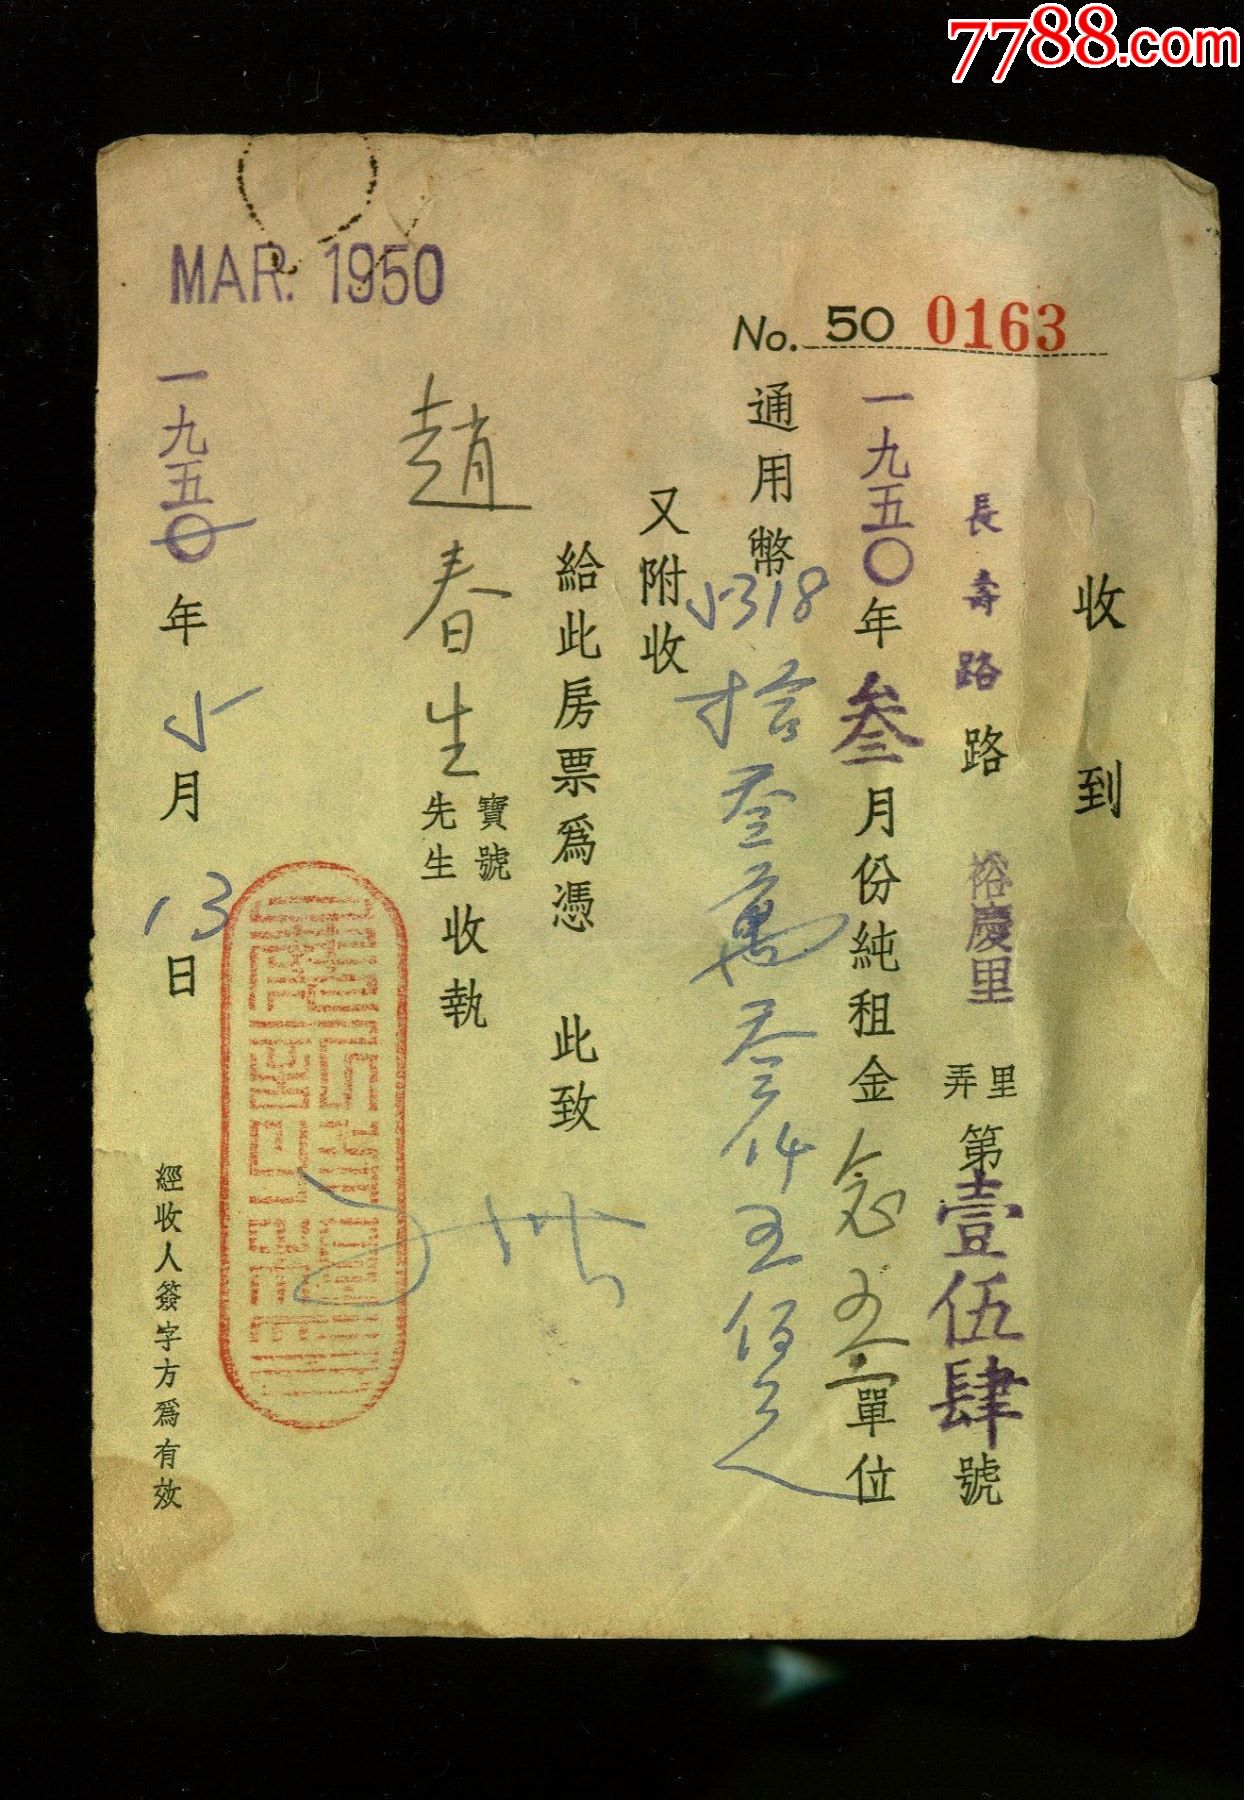 7788.com
MAR. 1950
No. 50 0163
收到
長壽路路 裕慶里 里弄 第壹伍肆號
一九五〇年叁月份純租金念五單位
通用幣 @5318 拾叁萬叁仟五佰元
又附收
給此房票爲憑 此致
趙春生 寶號先生 收執
一九五〇年5月13日
經收人簽字方爲有效